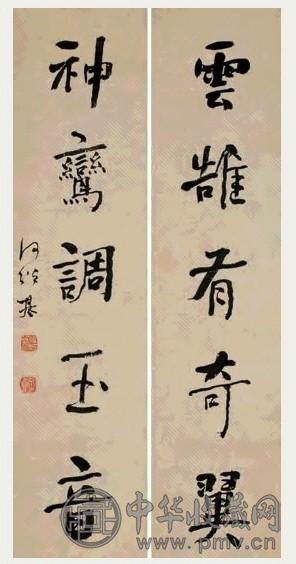 雲鶴有奇翼
神鸞調玉音
何紹基
中华收藏网
www.pmv.cn